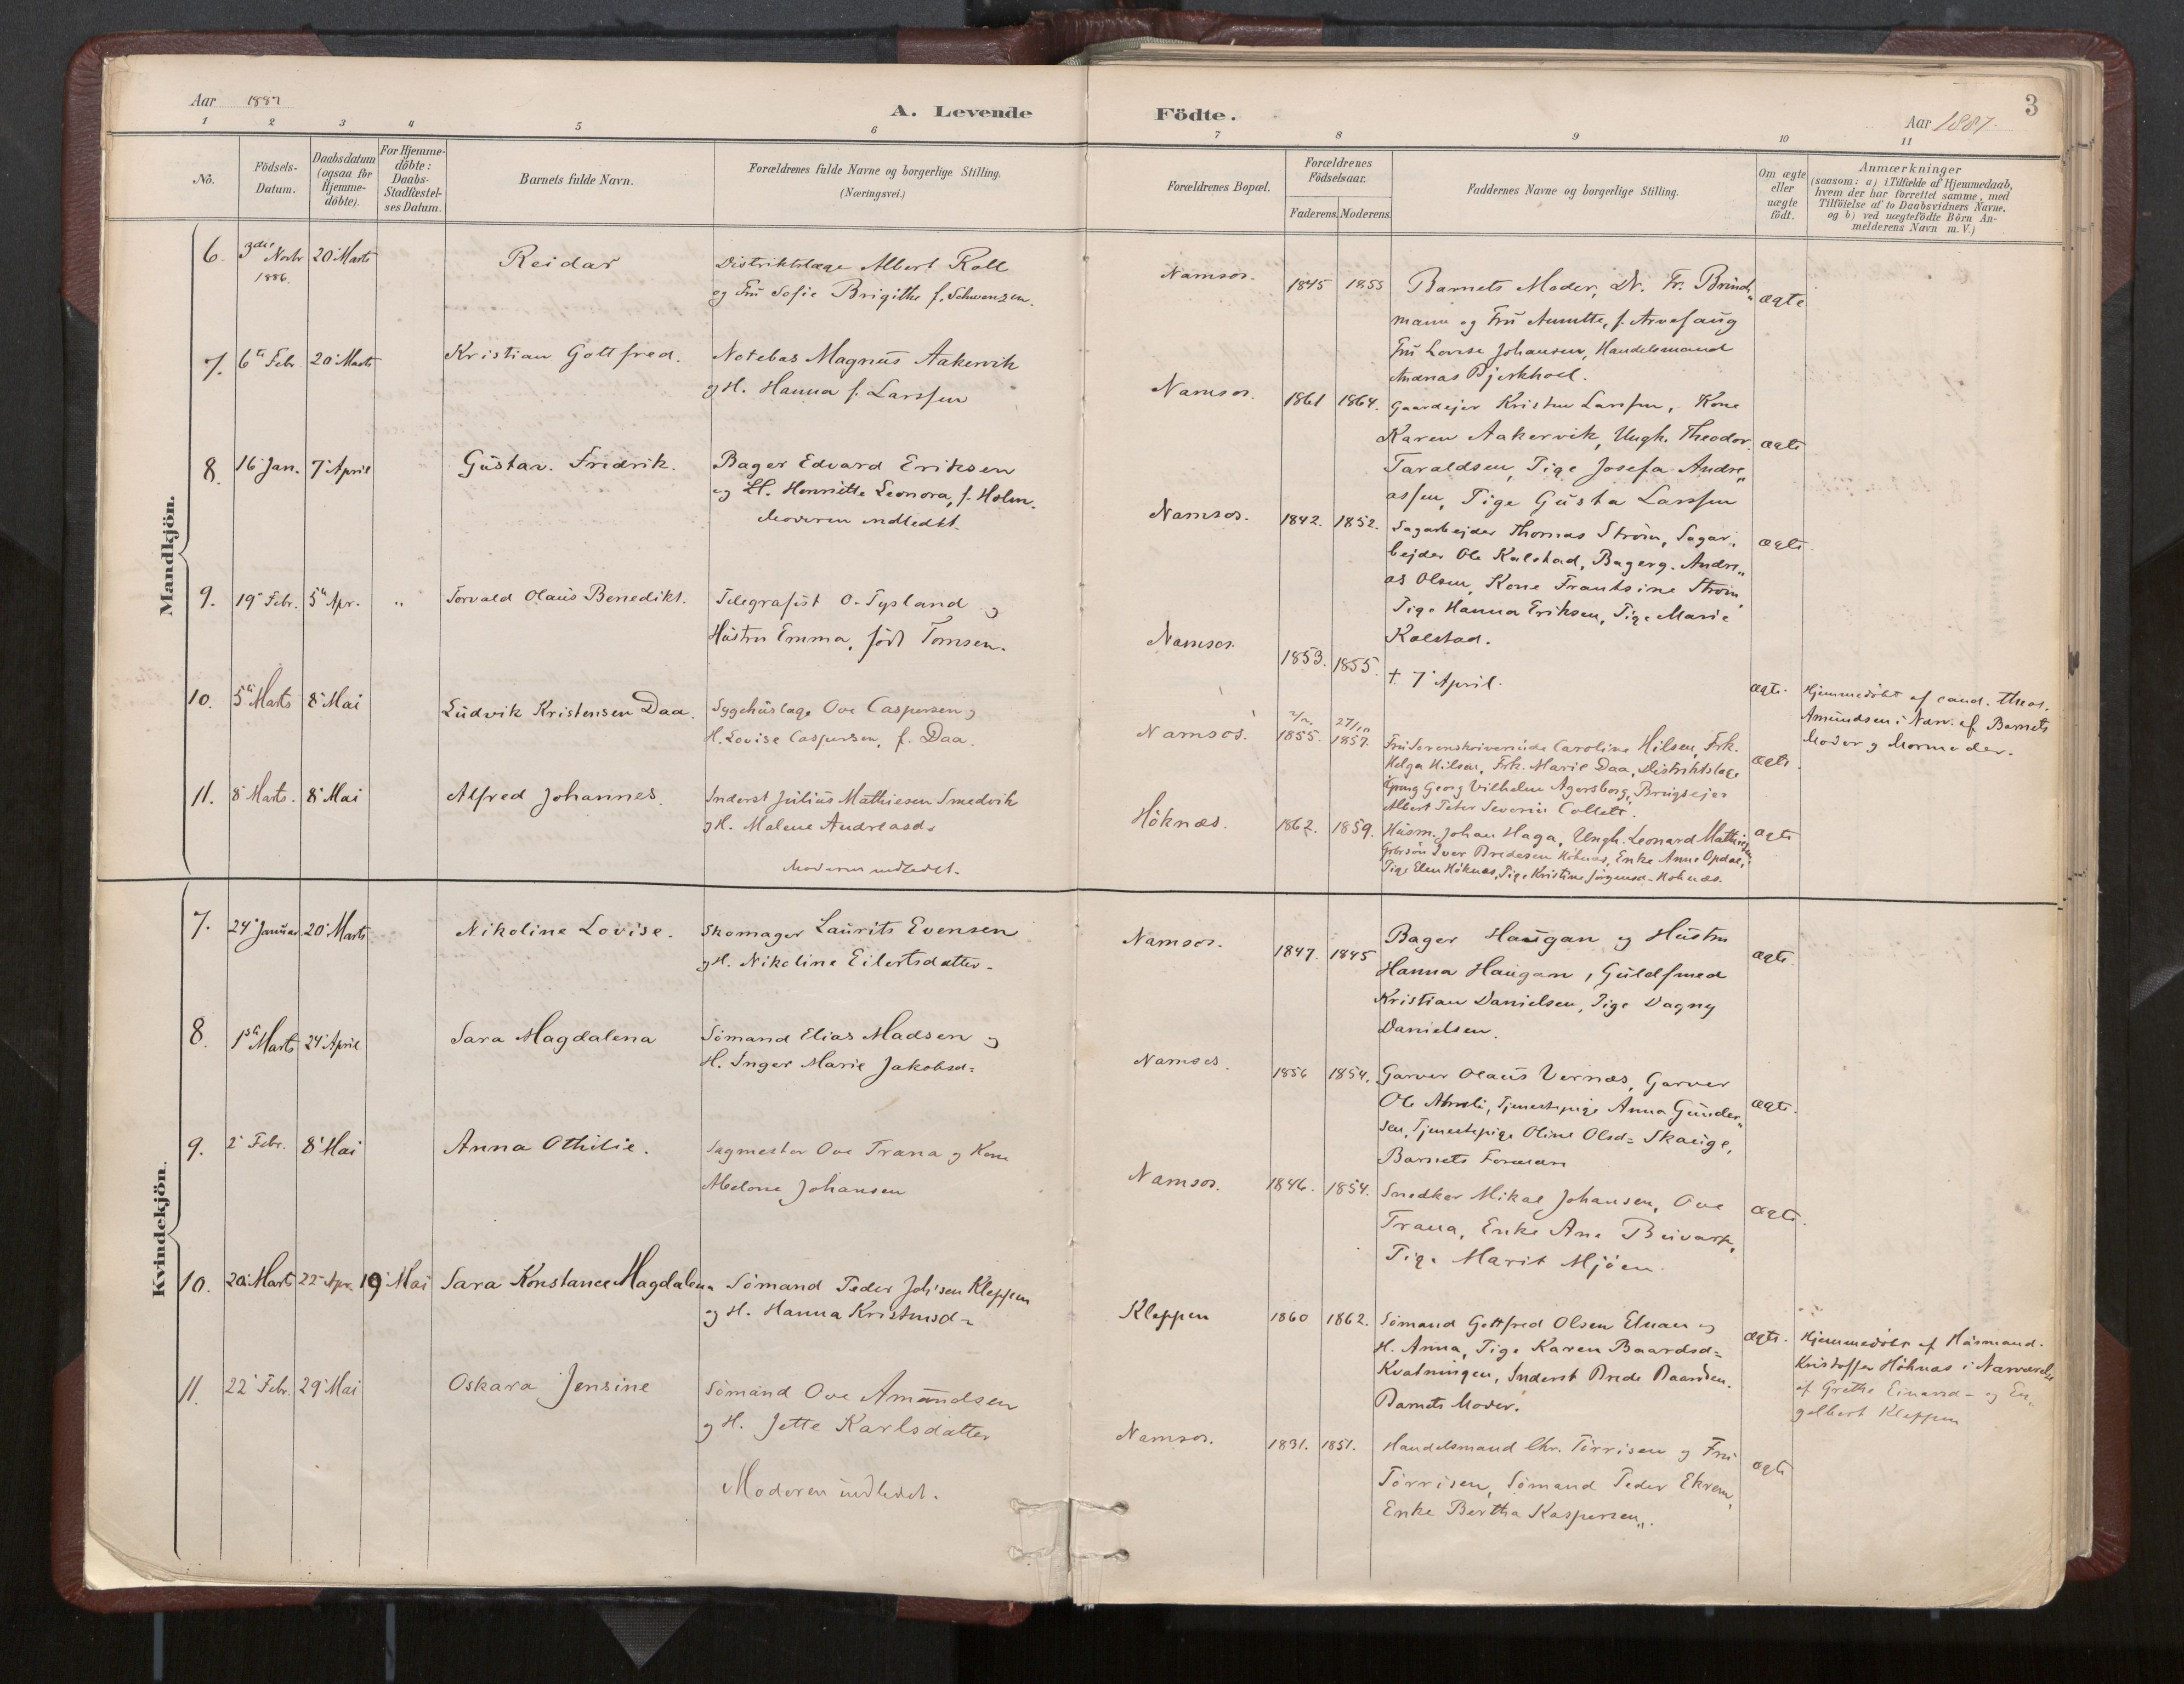 Aar 1887
A. Levende Födte.
Aar 1887.
3
1 2 3 4 5 6 7 8 9 10 11
No.
Födsels-
Datum.
Daabsdatum
(ogsaa for
Hjemme-
döbte).
For Hjemme-
döbte:
Daabs-
Stadfæstel-
ses Datum.
Barnets fulde Navn.
Forældrenes fulde Navne og borgerlige Stilling.
(Næringsvei.)
Forældrenes Bopæl.
Forældrenes
Födselsaar.
Faderens. Moderens.
Faddernes Navne og borgerlige Stilling.
Om ægte
eller
uægte
födt.
Anmærkninger
(saasom: a) i Tilfælde af Hjemmedaab,
hvem der har forrettet samme, med
Tilföielse af to Daabsvidners Navne.
og b) ved uægtefödte Börn An-
melderens Navn m. V.)
Mandkjön.
6. 3die Novbr 20 Marts Reidar Distriktslæge Albert Roll
1886.
og Fru Sofie Brigitha f. Schwenzen.
Namsos. 1845 1855 Barnets Moder, Dr. Fr. Brinch„ ægte
mann og Fru Annette, f. Arvesaug
Fru Lovise Johansen, Handelsmand
Andreas Bjerkhoel.
7. 6te Febr 20 Marts Kristian Gottfred. Notebas Magnus Aakervik
og H. Hanna f. Larssen
Namsos. 1861 1864. Gaardejer Kristen Larssen, Kone
Karen Aakervik, Ungk. Theodor ægte
Taraldsen, Pige Josefa Andre„
assen, Pige Gusta Larssen
8. 16 Jan. 7 April Gustav. Fredrik. Bager Edvard Eriksen
og H. Henriette Leonora, f. Holm.
Moderen indledet.
Namsos. 1842. 1852. Sagarbejder Thomas Ström, Sagar„ ægte
bejder Ole Kolstad, Bagerg. Andre„
as Olsen, Kone Frantsine Ström,
Pige Hanna Eriksen, Pige Marie
Kolstad.
9. 19 Febr. 5te Apr. „ Torvald Olaus Benedikt. Telegrafist O. Tysland og
Hustru Emma, född Tomsen.
Namsos. 1853. 1855. † 7 April. ægte. Hjemmedöbt af cand. theol.
Amundsen i Nærv. af Barnets
Moder og Mormoder.
10. 5te Marts 8 Mai Ludvik Kristensen Daa. Sygehuslæge Ove Caspersen og
H. Lovise Caspersen, f. Daa.
Namsos. 1855. 27/10 1857. Fru Sorenskriverinde Caroline Hilsen, Frk.
Helga Hilsen, Frk. Marie Daa, Distriktslæge ægte.
Georg Vilhelm Agersborg, Brugsejer
Albert Peter Severin Collett.
11. 8 Marts. 8 Mai Alfred Johannes. Inderst Julius Mathiesen Smedvik
og H. Malene Andreasd.
Moderen indledet.
Höknæs. 1862. 1859. Husm. Johan Haga, Ungk. Leonard Mathiesen, ægte
Gbrsön Iver Bredesen Höknæs, Enke Anne Opdal,
Pige Elen Höknæs, Pige Kristine Jörgensd. Höknæs.
Kvindekjön.
7. 24 Januar 20 Marts Nikoline Lovise. Skomager Laurits Evensen
og H. Nikoline Eilertsdatter.
Namsos. 1847. 1845 Bager Haugan og Hustru ægte.
Hanna Haugan, Guldsmed
Kristian Danielsen, Pige Dagny
Danielsen.
8. 1ste Marts 24 April Sara Magdalena Sömand Elias Madsen og
H. Inger Marie Jakobsd=
Namsos. 1856 1854. Garver Olaus Vernæs, Garver ægte.
Ole Tjenestepige Anna Gunder„
sen, Tjenestepige Oline Olsd= Skauge,
Barnets
9. 2 Febr. 8 Mai Anna Othilie. Sagmester Ove Trana og Kone
Johansen
Namsos. 1846. 1854. Snedker Mikal Johansen, Ove ægte.
Trana, Enke Ane
Pige Marit Mjöen.
10. 20 Marts 22 Apr. 19 Mai Sara Konstance Magdalena Sömand Peder Johsen Kleppen
og H. Hanna Kristensd=
Kleppen 1860 1862. Sömand Gottfred Olsen Elnan og ægte.
H. Anna, Pige Karen Baardsd=
Kvatningen, Inderst Brede Baardsen.
Barnets Moder.
Hjemmedöbt af Husmand
Kristoffer Höknæs i Nærværelse
af Grethe Einarsd= og En„
gelbert Kleppen
11. 22 Febr. 29 Mai Oskara Jensine Sömand Ove Amundsen
og H. Jette Karlsdatter
Moderen indledet.
Namsos. 1831. 1851. Handelsmand Chr. Törrisen og Fru ægte
Törrisen, Sömand Peder Ekrem,
Enke Bertha Kaspersen„.